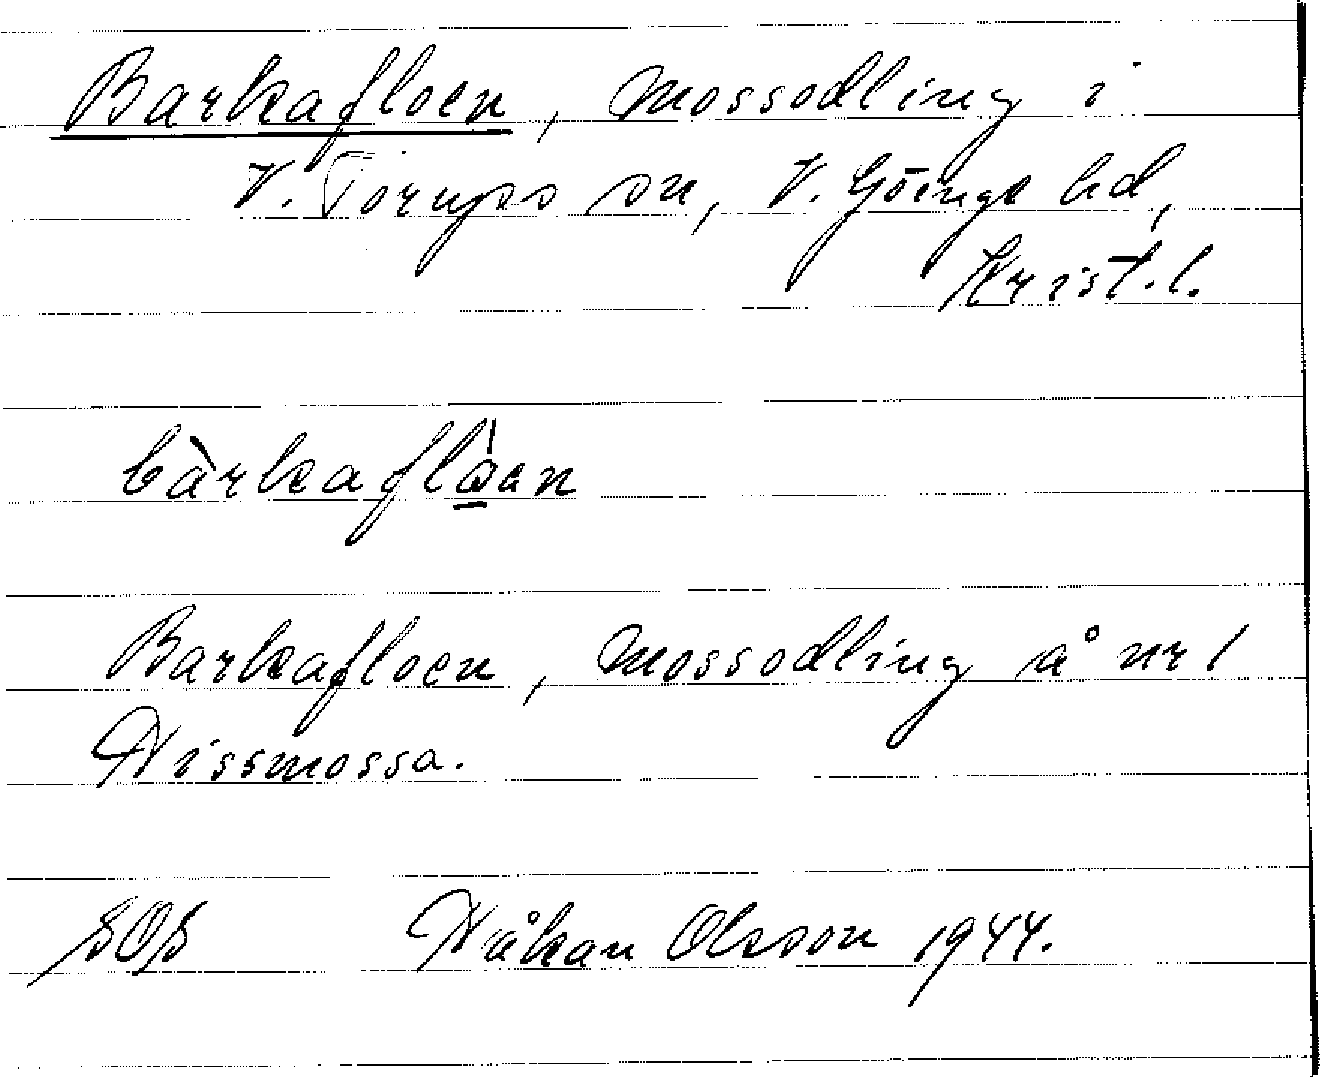 Barkafloen, mossodling i
V. Torups sn, V. Göinge hd,
Krist. l.
bàrkaflo̱̍en
Barkafloen, mossodling å nr 1
Hissmossa.
SOS Håkan Olsson 1944.